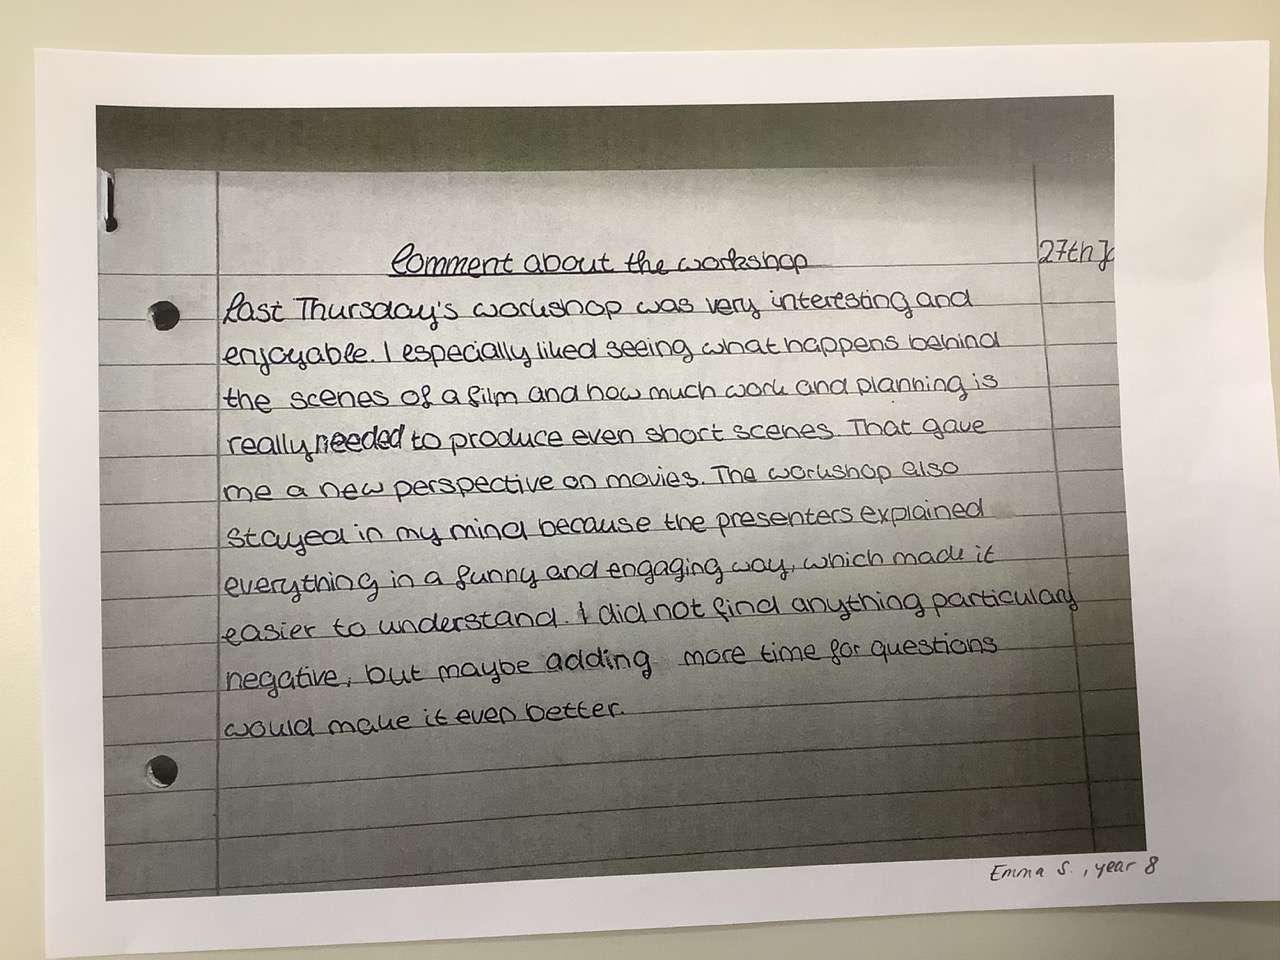 Comment about the workshop
27th J
Last Thursday's workshop was very interesting and
enjoyable. I especially liked seeing what happens behind
the scenes of a film and how much work and planning is
really needed to produce even short scenes. That gave
me a new perspective on movies. The workshop also
stayed in my mind because the presenters explained
everything in a funny and engaging way, which made it
easier to understand. I did not find anything particulary
negative, but maybe adding more time for questions
would make it even better.
Emma S., year 8